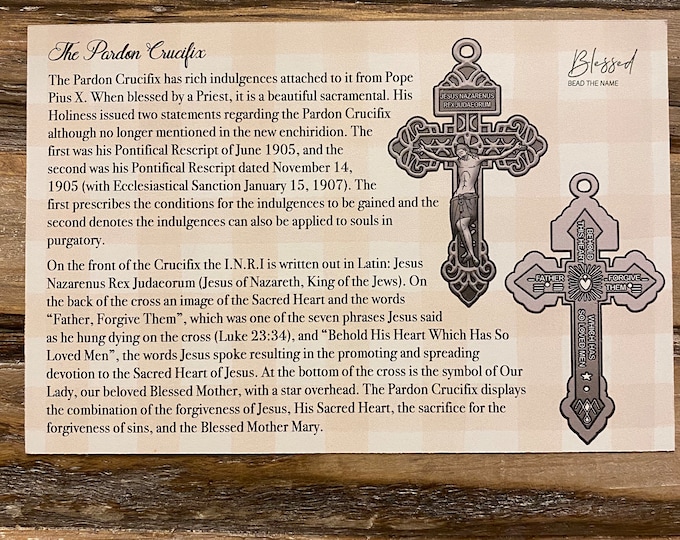 The Pardon Crucifix
The Pardon Crucifix has rich indulgences attached to it from Pope
Pius X. When blessed by a Priest, it is a beautiful sacramental. His
Holiness issued two statements regarding the Pardon Crucifix
although no longer mentioned in the new enchiridion. The
first was his Pontifical Rescript of June 1905, and the
second was his Pontifical Rescript dated November 14,
1905 (with Ecclesiastical Sanction January 15, 1907). The
first prescribes the conditions for the indulgences to be gained and the
second denotes the indulgences can also be applied to souls in
purgatory.
On the front of the Crucifix the I.N.R.I is written out in Latin: Jesus
Nazarenus Rex Judaeorum (Jesus of Nazareth, King of the Jews). On
the back of the cross an image of the Sacred Heart and the words
“Father, Forgive Them”, which was one of the seven phrases Jesus said
as he hung dying on the cross (Luke 23:34), and “Behold His Heart Which Has So
Loved Men”, the words Jesus spoke resulting in the promoting and spreading
devotion to the Sacred Heart of Jesus. At the bottom of the cross is the symbol of Our
Lady, our beloved Blessed Mother, with a star overhead. The Pardon Crucifix displays
the combination of the forgiveness of Jesus, His Sacred Heart, the sacrifice for the
forgiveness of sins, and the Blessed Mother Mary.
Blessed
BEAD THE NAME
JESUS NAZARENUS
REX JUDAEORUM
BEHOLD
THIS HEART
FATHER
FORGIVE
THEM
WHICH HAS
SO LOVED MEN